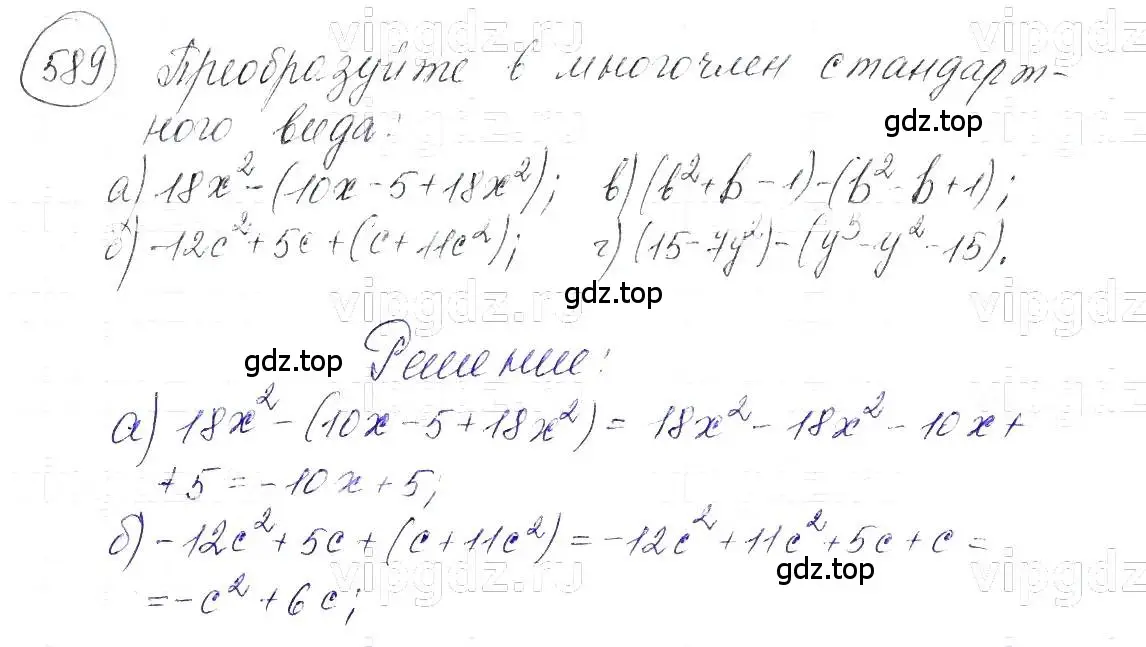 589 Преобразуйте в многочлен стандарт-
ного вида:
gdz.top
а) 18x² - (10x - 5 + 18x²); в) (b² + b - 1) - (b² - b + 1);
б) -12c² + 5c + (c + 11c²); г) (15 - 7y²) - (y³ - y² - 15).
vipgdz.ru
gdz.top
Решение:
gdz.top
а) 18x² - (10x - 5 + 18x²) = 18x² - 18x² - 10x +
+ 5 = -10x + 5;
vipgdz.ru
б) -12c² + 5c + (c + 11c²) = -12c² + 11c² + 5c + c =
gdz.top
= -c² + 6c;
vipgdz.ru